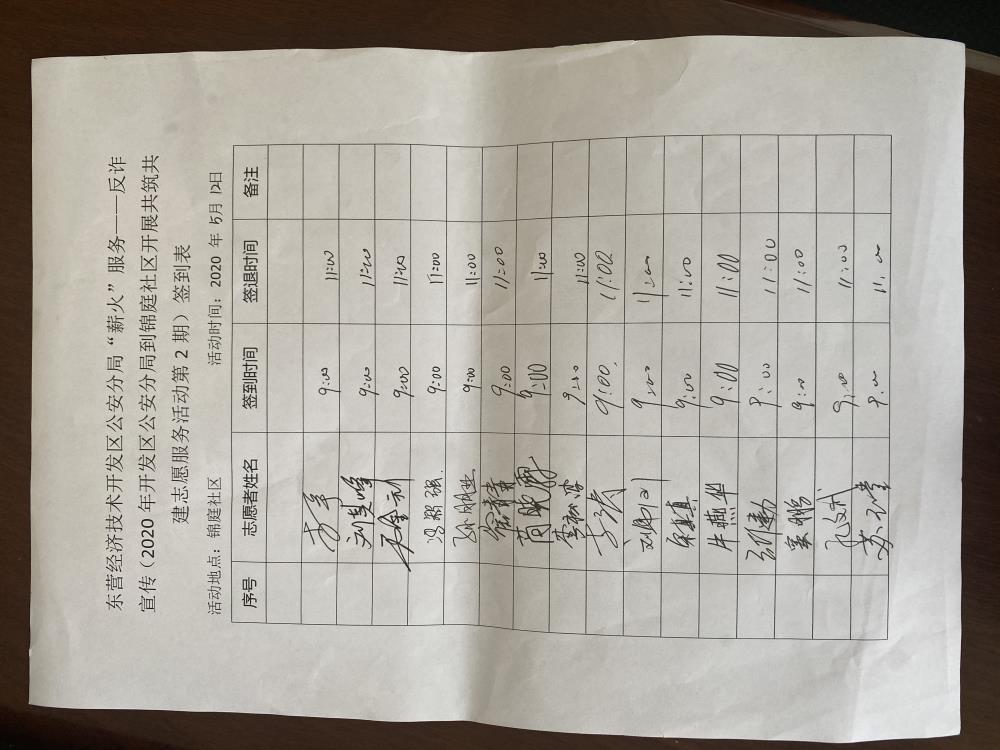 东营经济技术开发区公安分局“薪火”服务——反诈
宣传（2020 年开发区公安分局到锦庭社区开展共筑共
建志愿服务活动第 2 期）签到表
活动地点：锦庭社区 活动时间：2020 年 5月 12日
序号 志愿者姓名 签到时间 签退时间 备注
9:00 11:00
9:00 11:00
9:00 11:00
冯翔强 9:00 11:00
孙朋业 9:00 11:00
9:00 11:00
9:00 11:00
李松涛 9:00 11:00
9:00 11:00
9:00 11:00
9:00 11:00
牛燕华 9:00 11:00
9:00 11:00
9:00 11:00
9:00 11:00
9:00 11:00